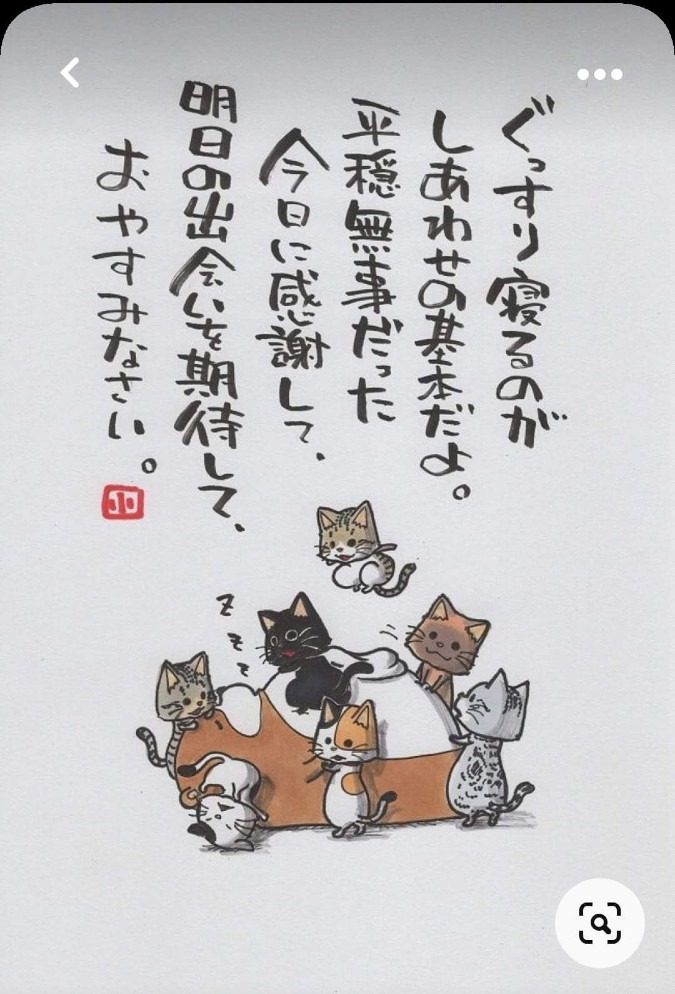 ぐっすり寝るのが
しあわせの基本だよ。
平穏無事だった
今日に感謝して、
明日の出会いを期待して、
おやすみなさい。
z
z
z